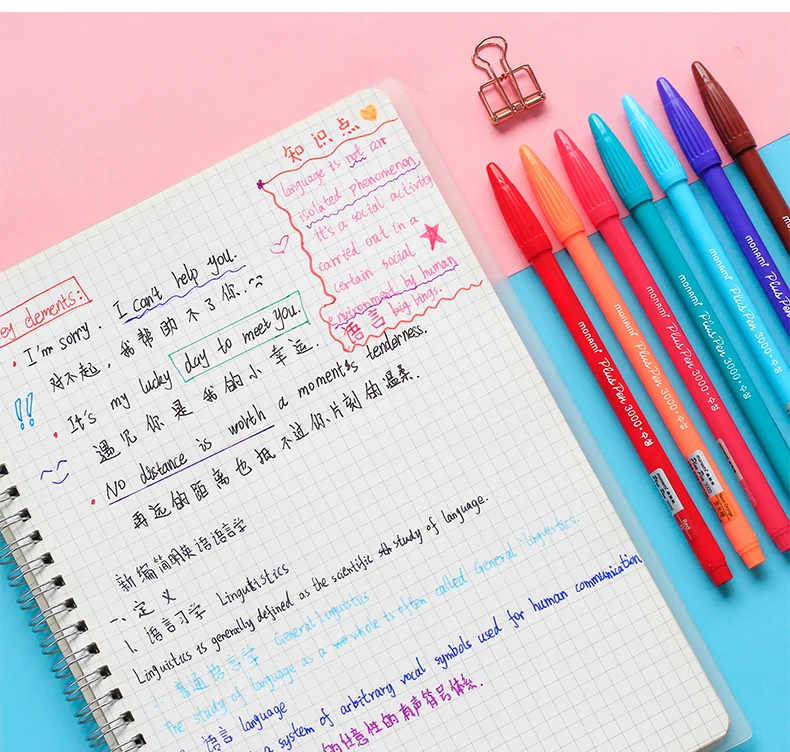 知识点
language is not an
isolated phenomenon
it's a social activity
carried out in a
certain social
environment by human
big bings.
语言
ey elements:
I'm sorry. I can't help you.
对不起，我帮助不了你.
It's my lucky day to meet you.
遇见你是我的小幸运.
No distance is worth a moment's tenderness.
再远的距离也抵不过你片刻的温柔.
新编简明英语语言学
一、定义
1. 语言习学 Linguistics
Linguistics is generally defined as the scientific study of language.
普通语言学 General Linguistics
The study of language as a whole is often called General linguistics.
语言 language
a system of arbitrary vocal symbols used for human communication
的任意性的有声符号体系.
monami Plus Pen 3000 · 수성
monami Plus Pen 3000 · 수성
monami Plus Pen 3000 · 수성
monami Plus Pen 3000 · 수성
monami Plus Pen 3000 · 수성
monami Plus Pen 3000
monami